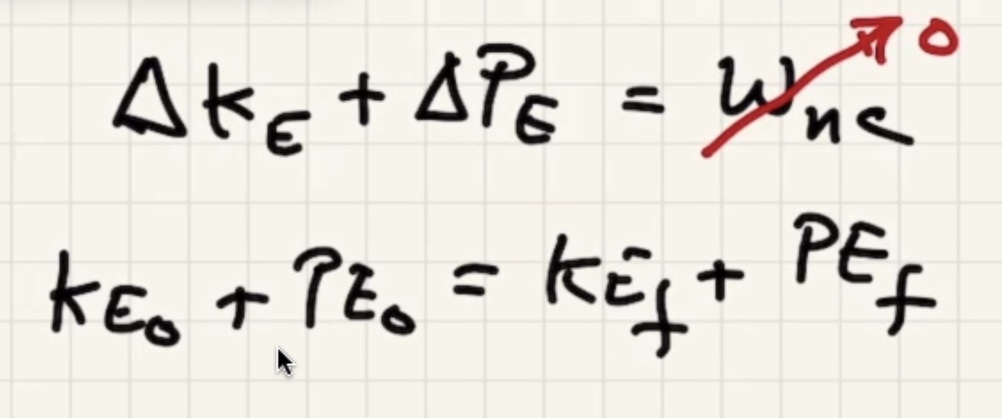 ΔKE + ΔPE = Wnc 0
KE₀ + PE₀ = KEf + PEf